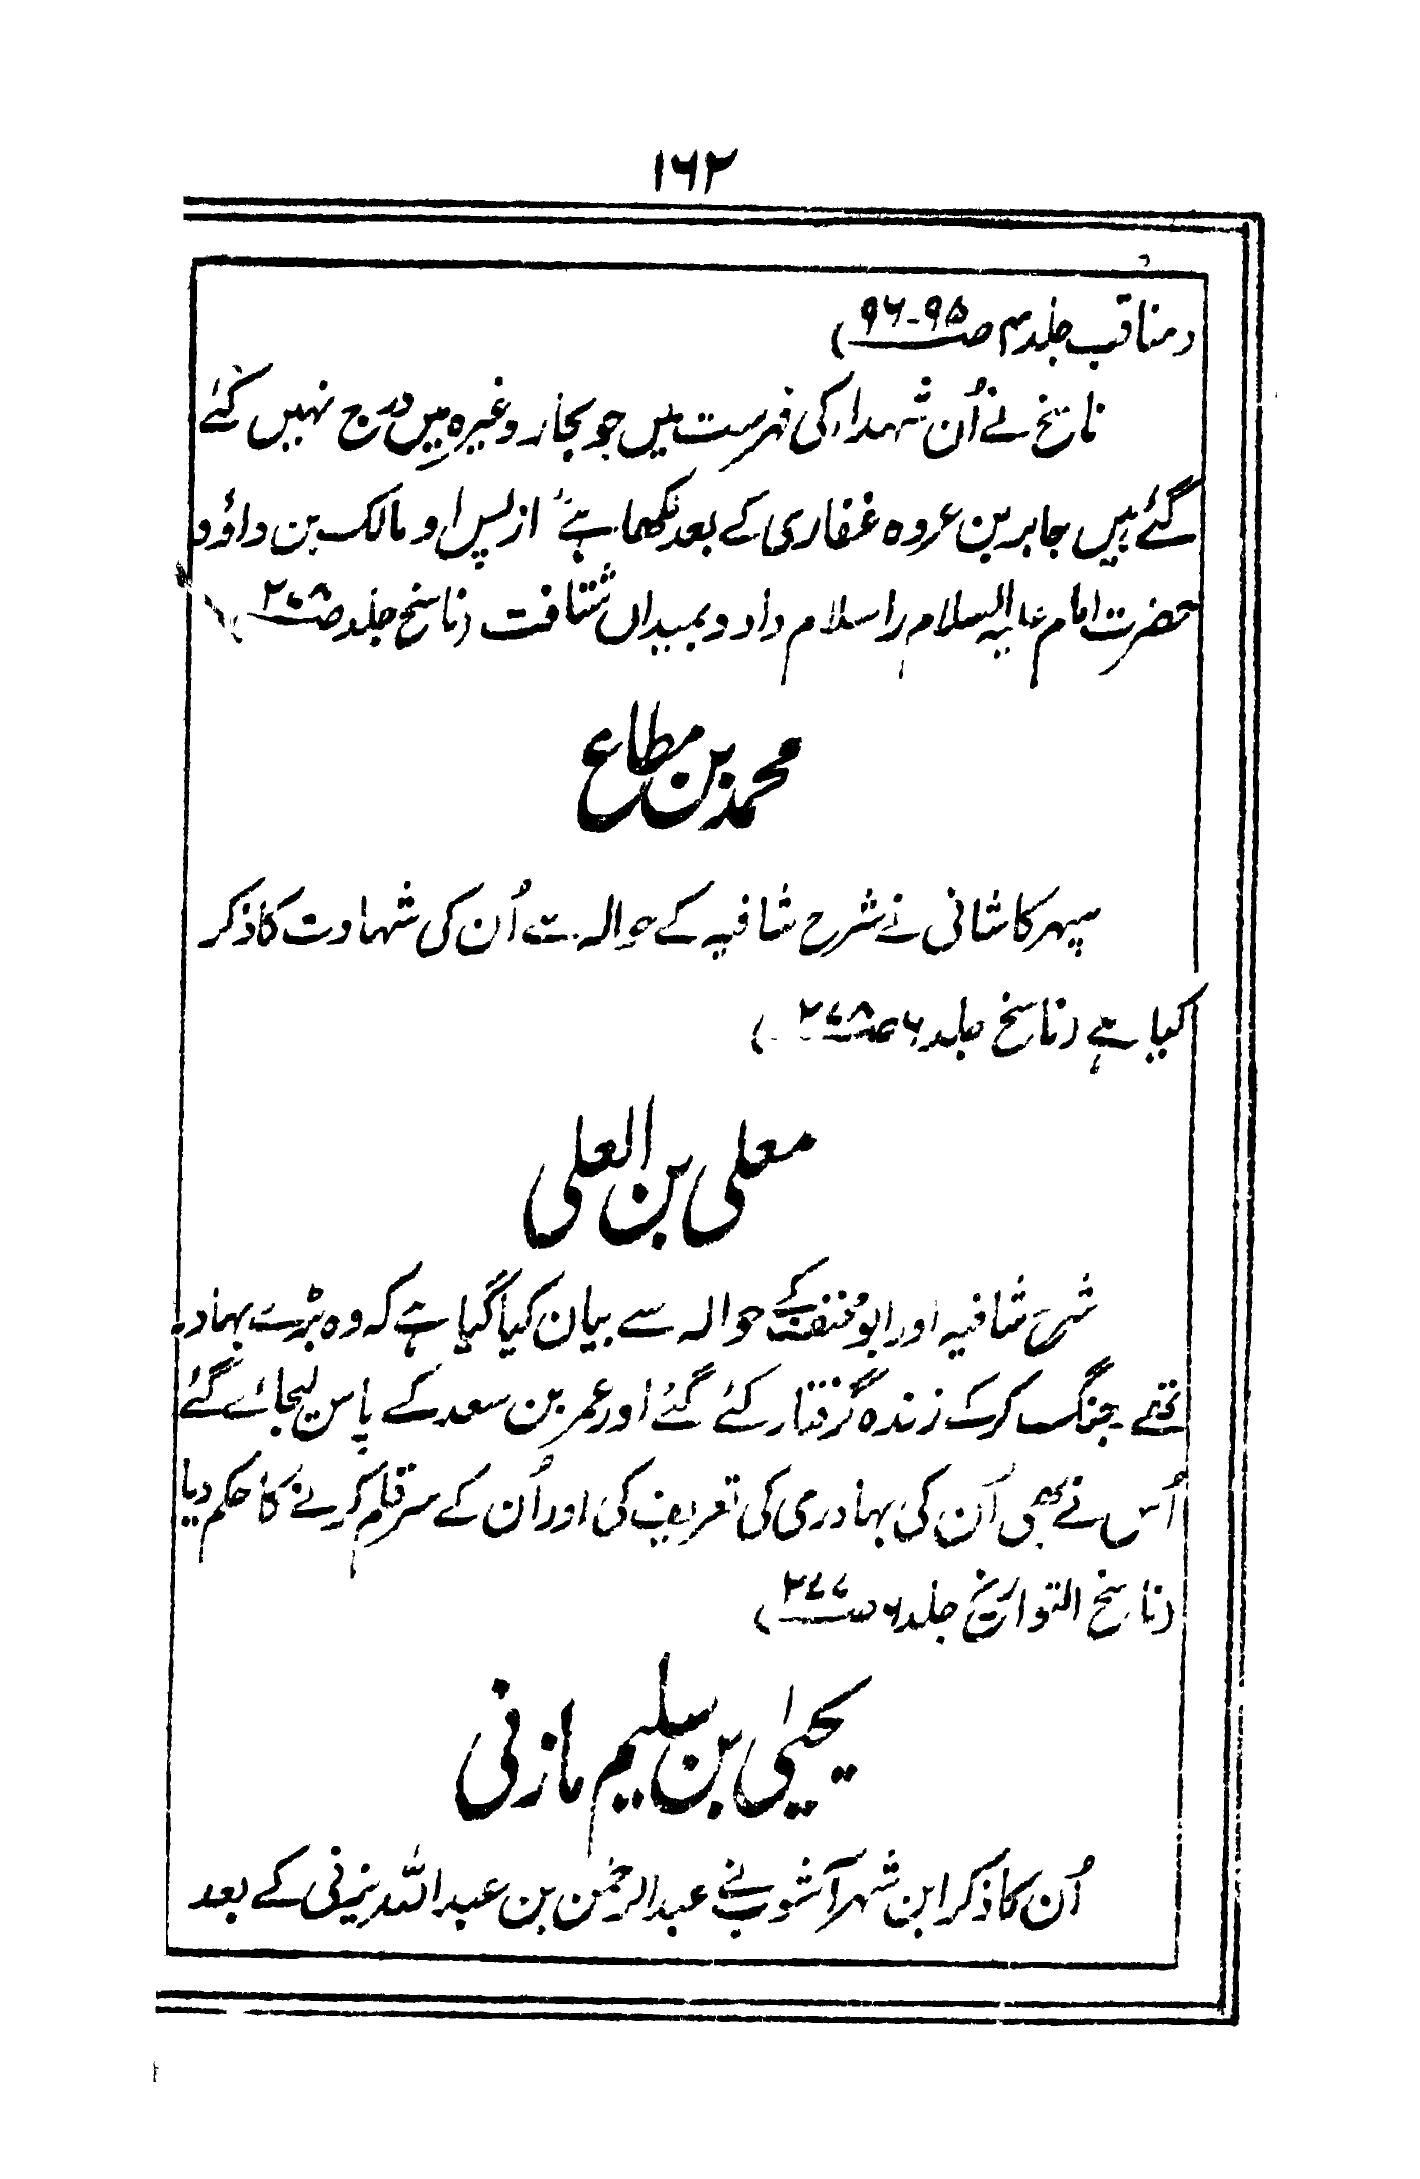 ۱۶۲
(مناقب جلد ۴ ص ۹۵-۹۶)
ناسخ نے اُن شہداء کی فہرست میں جو بحار وغیرہ میں درج نہیں کئے
گئے ہیں جابر بن عروہ غفاری کے بعد لکھا ہے" ازپس او مالک بن داؤد
حضرت امام علیہ السلام را سلام داد و بمیداں شتافت (ناسخ جلد ص ۲۷۸)
محمد بن مطاع
سپہر کاشانی نے شرح شافیہ کے حوالہ سے اُن کی شہادت کا ذکر
کیا ہے (ناسخ جلد ۶ ص ۲۷۸)
معلی بن العلی
شرح شافیہ اور ابو مخنف کے حوالہ سے بیان کیا گیا ہے کہ وہ بڑے بہادر
تھے جنگ کرکے زندہ گرفتار کئے گئے اور عمر بن سعد کے پاس لیجائے گئے
اُس نے بھی اُن کی بہادری کی تعریف کی اور اُن کے سر قلم کرنے کا حکم دیا
(ناسخ التواریخ جلد ۶ ص ۲۷۷)
یحییٰ بن سلیم مازنی
اُن کا ذکر ابن شہر آشوب نے عبدالرحمٰن بن عبداللہ یزنی کے بعد